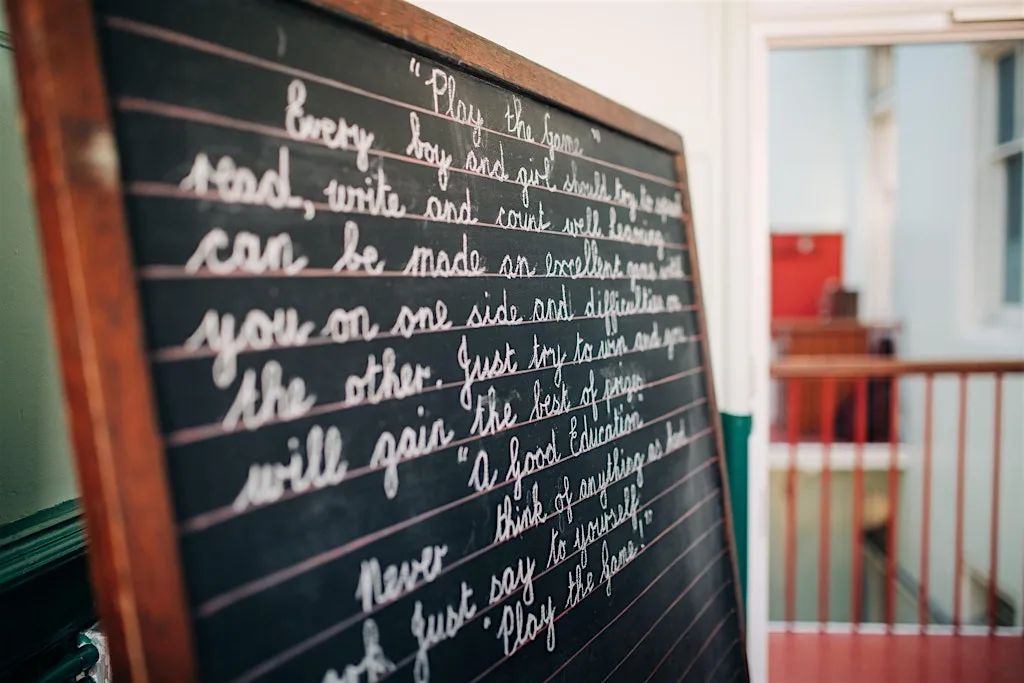 "Play the Game"
Every boy and girl should try to
read, write and count well. Learning
can be made an excellent game with
you on one side and difficulties on
the other. Just try to win and you
will gain the best of prizes
"A Good Education"
Never think of anything as hard
work Just say to yourself,
"Play the Game!"